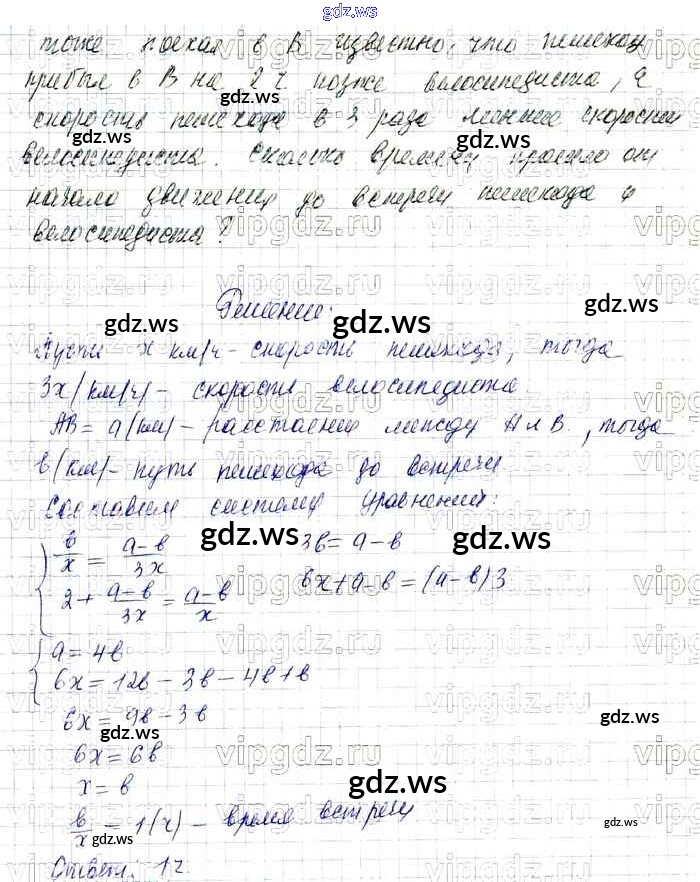 gdz.ws
тоже поехал в В. Известно, что пешеход
прибыл в В на 2 ч. позже велосипедиста, а
gdz.ws
скорость пешехода в 3 раза меньше скорости
gdz.ws gdz.ws
велосипедиста. Сколько времени прошло от
начала движения до встречи пешехода и
велосипедиста?
vipgdz.ru
Решение:
gdz.ws gdz.ws gdz.ws
Пусть x км/ч - скорость пешехода, тогда
3x (км/ч) - скорость велосипедиста.
gdz.ws gdz.ws
AB = a (км) - расстояние между A и B, тогда
b (км) - путь пешехода до встречи.
Составим систему уравнений:
b/x = (a-b)/3x 3b = a-b
gdz.ws gdz.ws
2 + (a-b)/3x = (a-b)/x 6x+a-b = (a-b)3
a = 4b
6x = 12b - 3b - 4b + b
6x = 9b - 3b
gdz.ws gdz.ws
6x = 6b
x = b
gdz.ws
b/x = 1 (ч) - время встречи
gdz.ws gdz.ws
Ответ: 1 ч.